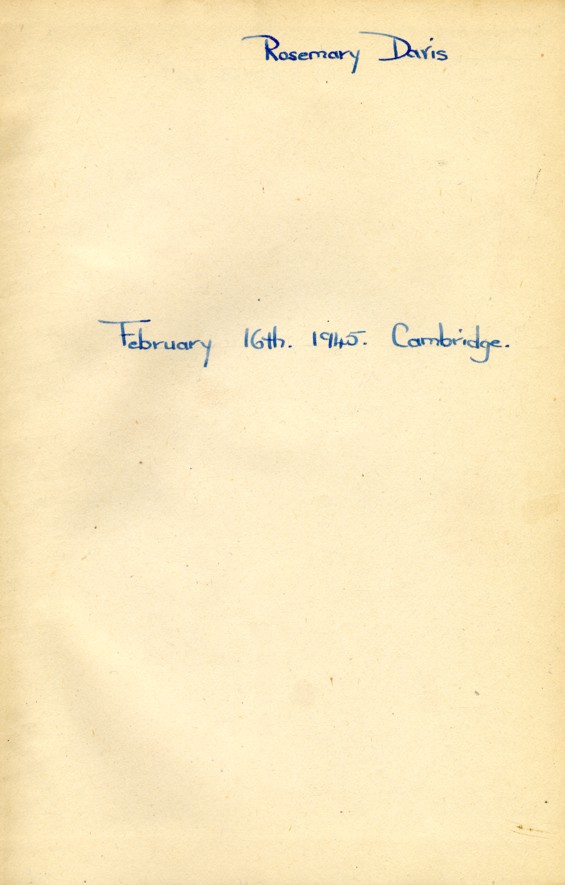 Rosemary Davis
February 16th. 1945. Cambridge.